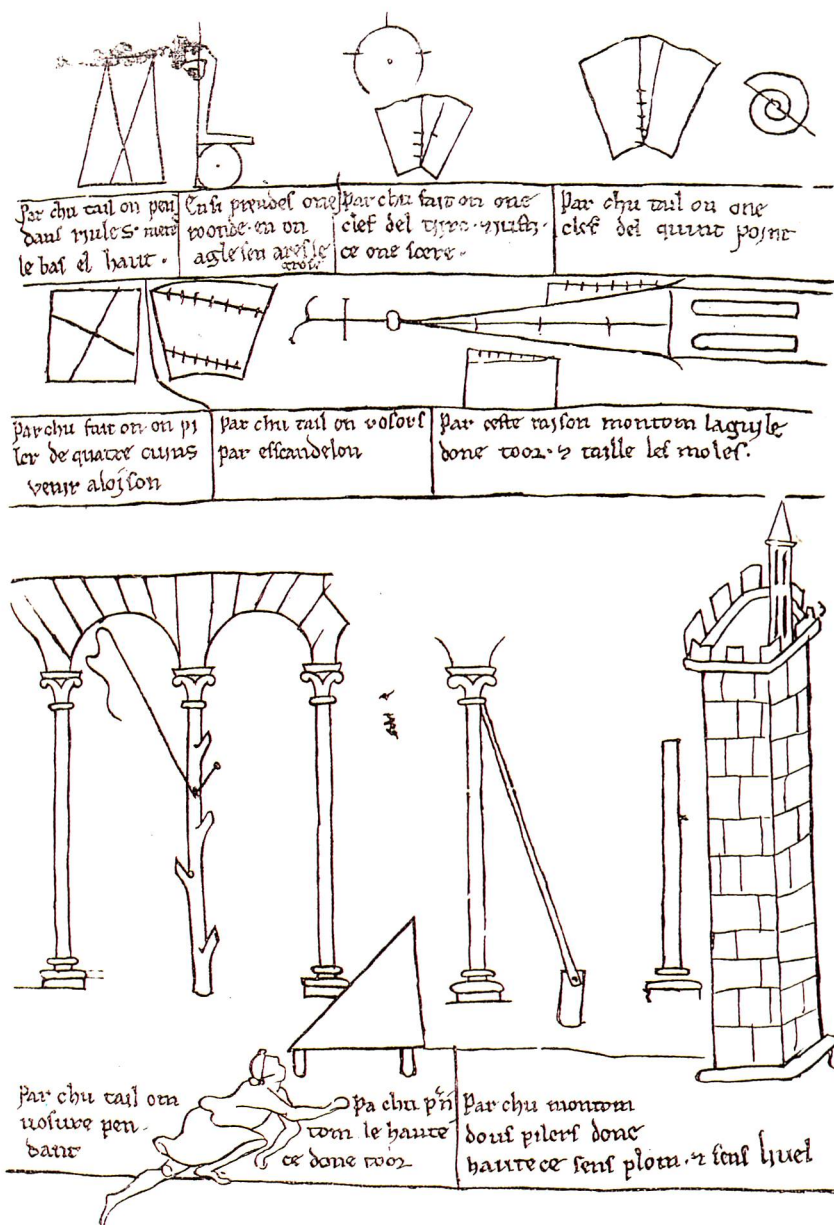 Par chu tail on pen
dans riules. mete
le bas el haut.
Ensi prendes one
roonde. en on
agle sen ares le
grose
Par chu fait on one
clef del tirc. & iusti-
ce one scere.
Par chu tail on one
clef del quint point
Par chu fait on. on pi
ler de quatre cuins
venir a loison
Par chu tail on vosors
par esscandelon
Par ceste raison montom laguile
done toor. & taille les moles.
Par chu tail om
vosure pen-
dant
Pa chu prn
tom le haute
ce done toor
Par chu montom
dous pilers done
hautece sens plom. & sens livel